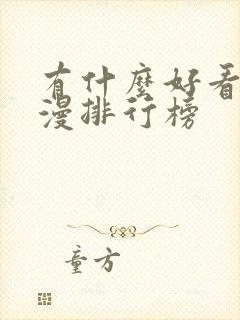 有什麼好看
漫排行榜
童方